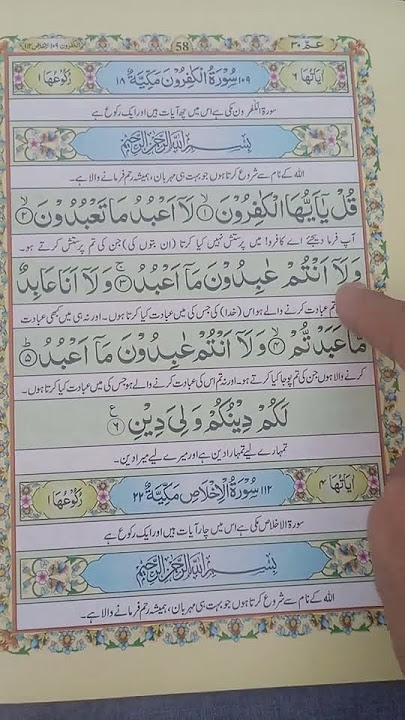 عمّ ۳۰
58
الکٰفرون ۱۰۹، الاخلاص ۱۱۲
اٰیَاتُهَا ۶
۱۰۹ سُوْرَةُ الْكٰفِرُوْنَ مَكِّيَّةٌ ۱۸
رُكُوْعُهَا ۱
سورۃ الکٰفرون مکی ہے اس میں چھ آیات ہیں اور ایک رکوع ہے
بِسْمِ اللّٰهِ الرَّحْمٰنِ الرَّحِيْمِ
اللہ کے نام سے شروع کرتا ہوں جو بہت ہی مہربان، ہمیشہ رحم فرمانے والا ہے۔
قُلْ يٰۤاَيُّهَا الْكٰفِرُوْنَ ۙ﴿۱﴾ لَاۤ اَعْبُدُ مَا تَعْبُدُوْنَ ۙ﴿۲﴾
آپ فرما دیجئے اے کافرو! میں پرستش نہیں کیا کرتا (ان بتوں کی) جن کی تم پرستش کرتے ہو۔
وَلَاۤ اَنْتُمْ عٰبِدُوْنَ مَاۤ اَعْبُدُ ۚ﴿۳﴾ وَلَاۤ اَنَا عَابِدٌ
تم عبادت کرنے والے ہو اس (خدا) کی جس کی میں عبادت کیا کرتا ہوں۔ اور نہ ہی میں کبھی عبادت
مَّا عَبَدْتُّمْ ۙ﴿۴﴾ وَلَاۤ اَنْتُمْ عٰبِدُوْنَ مَاۤ اَعْبُدُ ؕ﴿۵﴾
کرنے والا ہوں جن کی تم پوجا کیا کرتے ہو۔ اور نہ تم اس کی عبادت کرنے والے ہو جس کی میں عبادت کیا کرتا ہوں۔
لَكُمْ دِيْنُكُمْ وَلِيَ دِيْنِ ﴿۶﴾ ع
تمہارے لیے تمہارا دین ہے اور میرے لیے میرا دین۔
اٰیَاتُهَا ۴
۱۱۲ سُوْرَةُ الْاِخْلَاصِ مَكِّيَّةٌ ۲۲
رُكُوْعُهَا ۱
سورۃ الاخلاص مکی ہے اس میں چار آیات ہیں اور ایک رکوع ہے
بِسْمِ اللّٰهِ الرَّحْمٰنِ الرَّحِيْمِ
اللہ کے نام سے شروع کرتا ہوں جو بہت ہی مہربان، ہمیشہ رحم فرمانے والا ہے۔